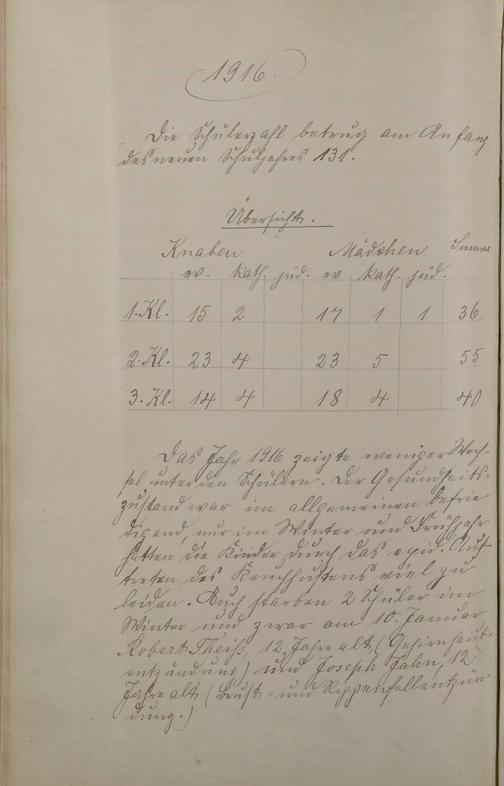 1916.
Die Schülerzahl betrug am Anfang
des neuen Schuljahres 131.
Übersicht.
Knaben Mädchen Summe
ev. kath. jüd. ev kath. jüd.
1. Kl. 15 2 17 1 1 36
2. Kl. 23 4 23 5 55
3. Kl. 14 4 18 4 40
Das Jahr 1916 zeigte weniger Wech-
sel unter den Schülern. Der Gesundheits-
zustand war im allgemeinen befrie-
digend, nur im Winter und Frühjahr
hatten die Kinder durch das epid. Auf
treten des Keuchhustens viel zu
leiden. Auch starben 2 Schüler im
Winter und zwar am 10. Januar
Robert Theiß, 12 Jahre alt (Gehirnhaut-
entzündung) und Joseph Jahn, 12
Jahre alt (Brust- und Rippenfellentzün-
dung.)